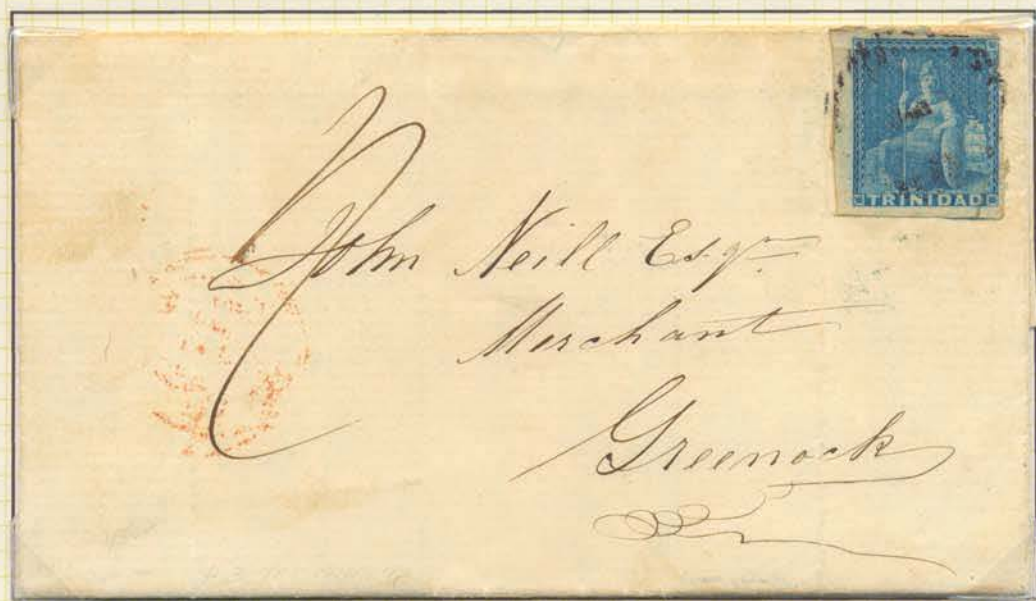 TRINIDAD
John Neill Esqr
Merchant
Greenock